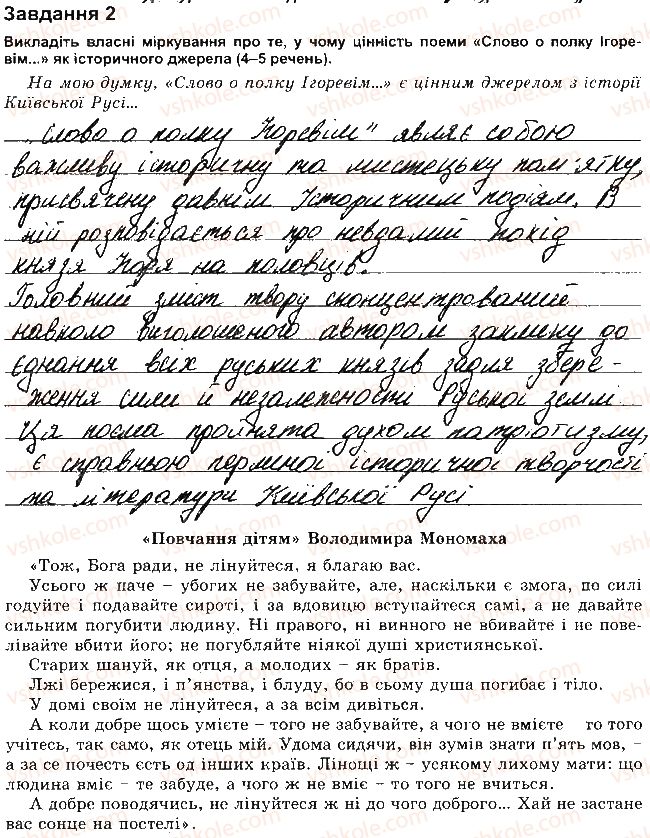 Завдання 2
Викладіть власні міркування про те, у чому цінність поеми «Слово о полку Ігоре-
вім...» як історичного джерела (4–5 речень).
На мою думку, «Слово о полку Ігоревім...» є цінним джерелом з історії
Київської Русі...
„Слово о полку Ігоревім" являє собою
важливу історичну та мистецьку пам'ятку,
присвячену давнім історичним подіям. В
ній розповідається про невдалий похід
князя Ігоря на половців.
Головний зміст твору сконцентрований
навколо виголошеного автором заклику до
єднання всіх руських князів задля збере-
ження сили й незалежності Руської землі
Ця поема пройнята духом патріотизму,
є справньою перлиної історичної творчості
та літератури Київської Русі
«Повчання дітям» Володимира Мономаха
«Тож, Бога ради, не лінуйтеся, я благаю вас.
Усього ж паче – убогих не забувайте, але, наскільки є змога, по силі
годуйте і подавайте сироті, і за вдовицю вступайтеся самі, а не давайте
сильним погубити людину. Ні правого, ні винного не вбивайте і не пове-
лівайте вбити його; не погубляйте ніякої душі християнської.
Старих шануй, як отця, а молодих – як братів.
Лжі бережися, і п'янства, і блуду, бо в сьому душа погибає і тіло.
У домі своїм не лінуйтеся, а за всім дивіться.
А коли добре щось умієте – того не забувайте, а чого не вмієте то того
учітесь, так само, як отець мій. Удома сидячи, він зумів знати п'ять мов, –
а за се почесть єсть од інших країв. Лінощі ж – усякому лихому мати: що
людина вміє – те забуде, а чого ж не вміє – то того не вчиться.
А добре поводячись, не лінуйтеся ж ні до чого доброго... Хай не застане
вас сонце на постелі».